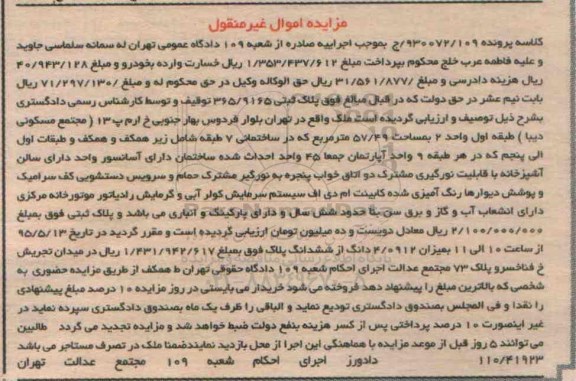 مزایده اموال غیرمنقول
کلاسه پرونده ۹۳۰۰۷۲/۱۰۹/ج بموجب اجراییه صادره از شعبه ۱۰۹ دادگاه عمومی تهران له سمانه سلماسی جاوید
و علیه فاطمه عرب خلج محکوم بپرداخت مبلغ ۱/۳۵۳/۴۳۷/۶۱۲ ریال خسارت وارده بخودرو و مبلغ ۴۰/۹۴۳/۱۲۸
ریال هزینه دادرسی و مبلغ ۳۱/۵۶۱/۸۷۷/ ریال حق الوکاله وکیل در حق محکوم له و مبلغ ۷۱/۲۹۷/۱۳۰/ ریال
بابت نیم عشر در حق دولت که در قبال مبالغ فوق پلاک ثبتی ۳۶۵/۹۱۶۵ توقیف و توسط کارشناس رسمی دادگستری
بشرح ذیل توصیف و ارزیابی گردیده است ملک واقع در تهران بلوار فردوس بهار جنوبی خ ارم پ ۱۳ ( مجتمع مسکونی
دیبا ) طبقه اول واحد ۲ بمساحت ۵۷/۴۹ مترمربع که در ساختمانی ۷ طبقه شامل زیر همکف و همکف و طبقات اول
الی پنجم که در هر طبقه ۹ واحد آپارتمان جمعا ۴۵ واحد احداث شده ساختمان دارای آسانسور واحد دارای سالن
آشپزخانه با قابلیت نورگیری مشترک دو اتاق خواب پنجره به نورگیر مشترک حمام و سرویس دستشویی کف سرامیک
و پوشش دیوارها رنگ آمیزی شده کابینت ام دی اف سیستم سرمایش کولر آبی و گرمایش رادیاتور موتورخانه مرکزی
دارای انشعاب آب و گاز و برق سن بنا حدود شش سال و دارای پارکینگ و انباری می باشد و پلاک ثبتی فوق بمبلغ
۲/۱۰۰/۰۰۰/۰۰۰ ریال معادل دویست و ده میلیون تومان ارزیابی گردیده است و مقرر گردید در تاریخ ۹۵/۵/۱۳
از ساعت ۱۰ الی ۱۱ بمیزان ۴/۰۹۱۲ دانگ از ششدانگ پلاک فوق بمبلغ ۱/۴۳۱/۹۴۲/۶۱۷ ریال در میدان تجریش
خ فناخسرو پلاک ۷۳ مجتمع عدالت اجرای احکام شعبه ۱۰۹ دادگاه حقوقی تهران ط همکف از طریق مزایده حضوری به
شخصی که بالاترین مبلغ را پیشنهاد دهد فروخته می شود خریدار می بایستی در روز مزایده ۱۰ درصد مبلغ پیشنهادی
را نقدا و فی المجلس بصندوق دادگستری تودیع نماید و الباقی را ظرف یک ماه بصندوق دادگستری سپرده نماید در
غیر اینصورت ۱۰ درصد پرداختی پس از کسر هزینه بنفع دولت ضبط خواهد شد و مزایده تجدید می گردد طالبین
می توانند ۵ روز قبل از موعد مزایده با هماهنگی این اجرا از محل بازدید نمایند ضمنا ملک در تصرف مستاجر می باشد
۱۱۰/۴۱۹۲۳ دادورز اجرای احکام شعبه ۱۰۹ مجتمع عدالت تهران